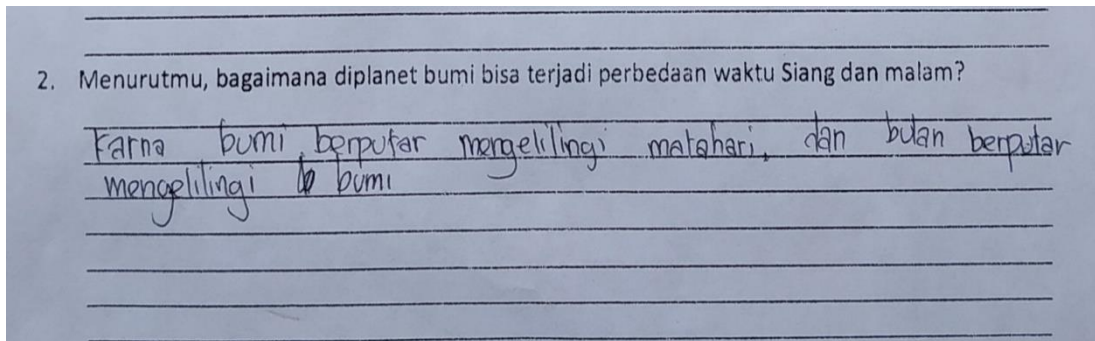 2. Menurutmu, bagaimana diplanet bumi bisa terjadi perbedaan waktu Siang dan malam?
Karna bumi berputar mengelilingi matahari, dan bulan berputar
mengelilingi bumi